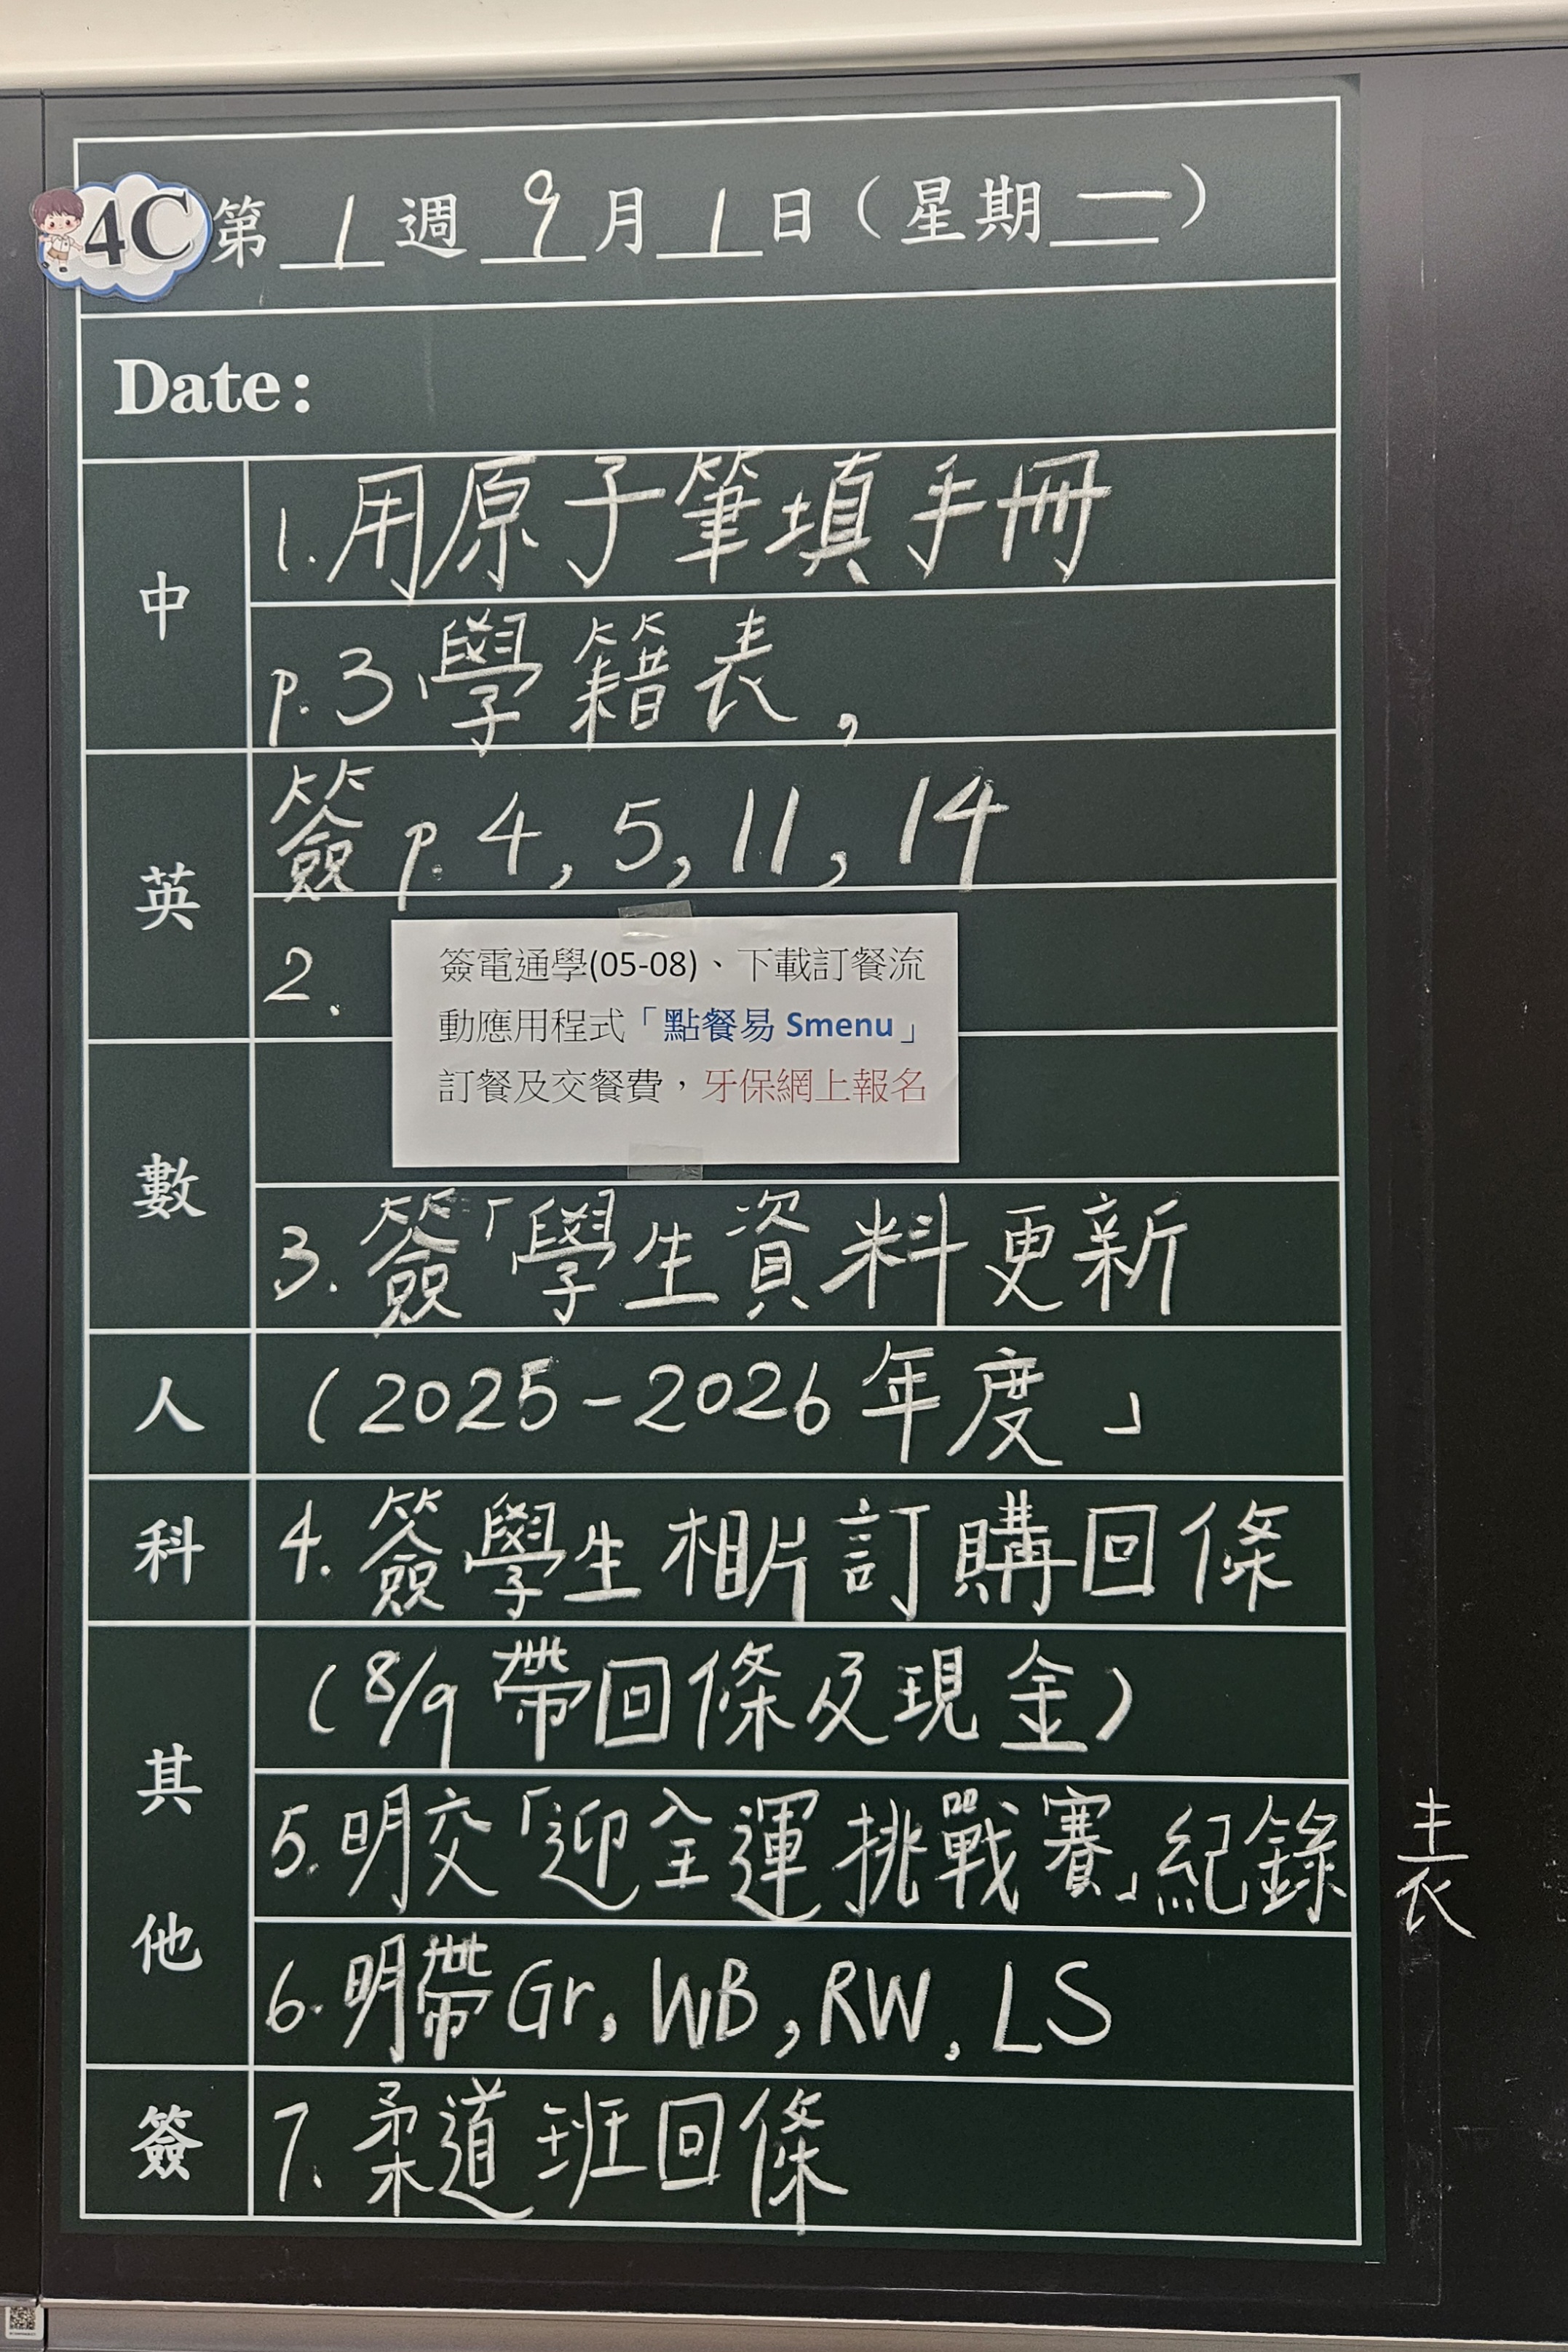 4C 第 1 週 9 月 1 日（星期一）
Date:
中
1. 用原子筆填手冊
p.3 學籍表，
英
簽 p. 4, 5, 11, 14
2.
簽電通學(05-08)、下載訂餐流
動應用程式「點餐易 Smenu」
訂餐及交餐費，牙保網上報名
數
3. 簽「學生資料更新
人
(2025-2026年度」
科
4. 簽學生相片訂購回條
其他
(8/9 帶回條及現金)
5. 明交「迎全運挑戰賽」紀錄表
6. 明帶 Gr, WB, RW, LS
簽
7. 柔道班回條